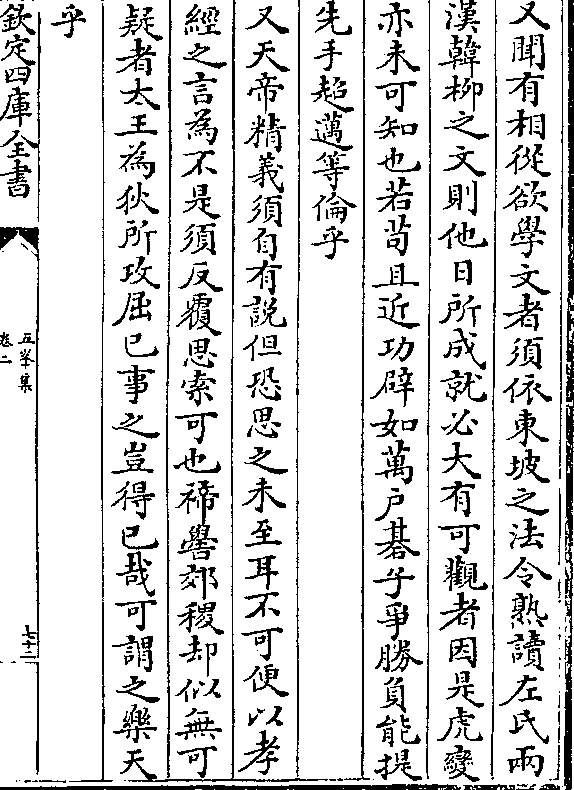 又聞有相從欲學文者須依東坡之法令熟讀左氏兩
漢韓柳之文則他日所成就必大有可觀者因是虎變
亦未可知也若茍且近功辟如萬户碁子爭勝負能提
先手超邁等倫乎
又天帝精義須自有説但恐思之未至耳不可便以孝
經之言為不是須反覆思索可也禘嚳郊稷却似無可
疑者太王為狄所攻屈已事之豈得已哉可謂之樂天
乎
欽定四庫全書
五峯集
卷二
七十三